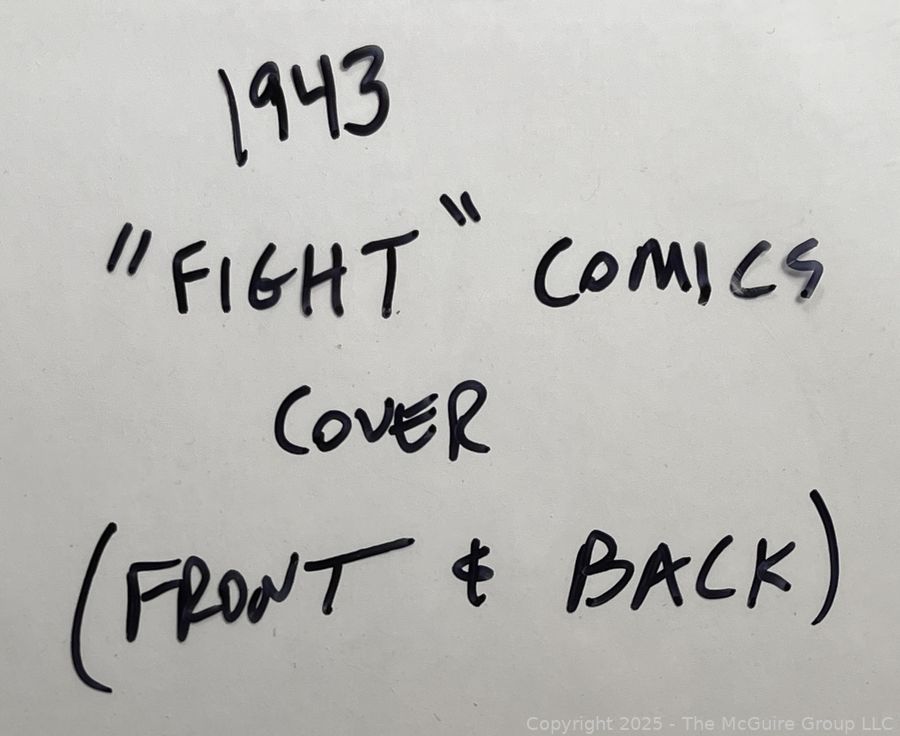 1943
"FIGHT" COMICS
COVER
(FRONT & BACK)
Copyright 2025 - The McGuire Group LLC